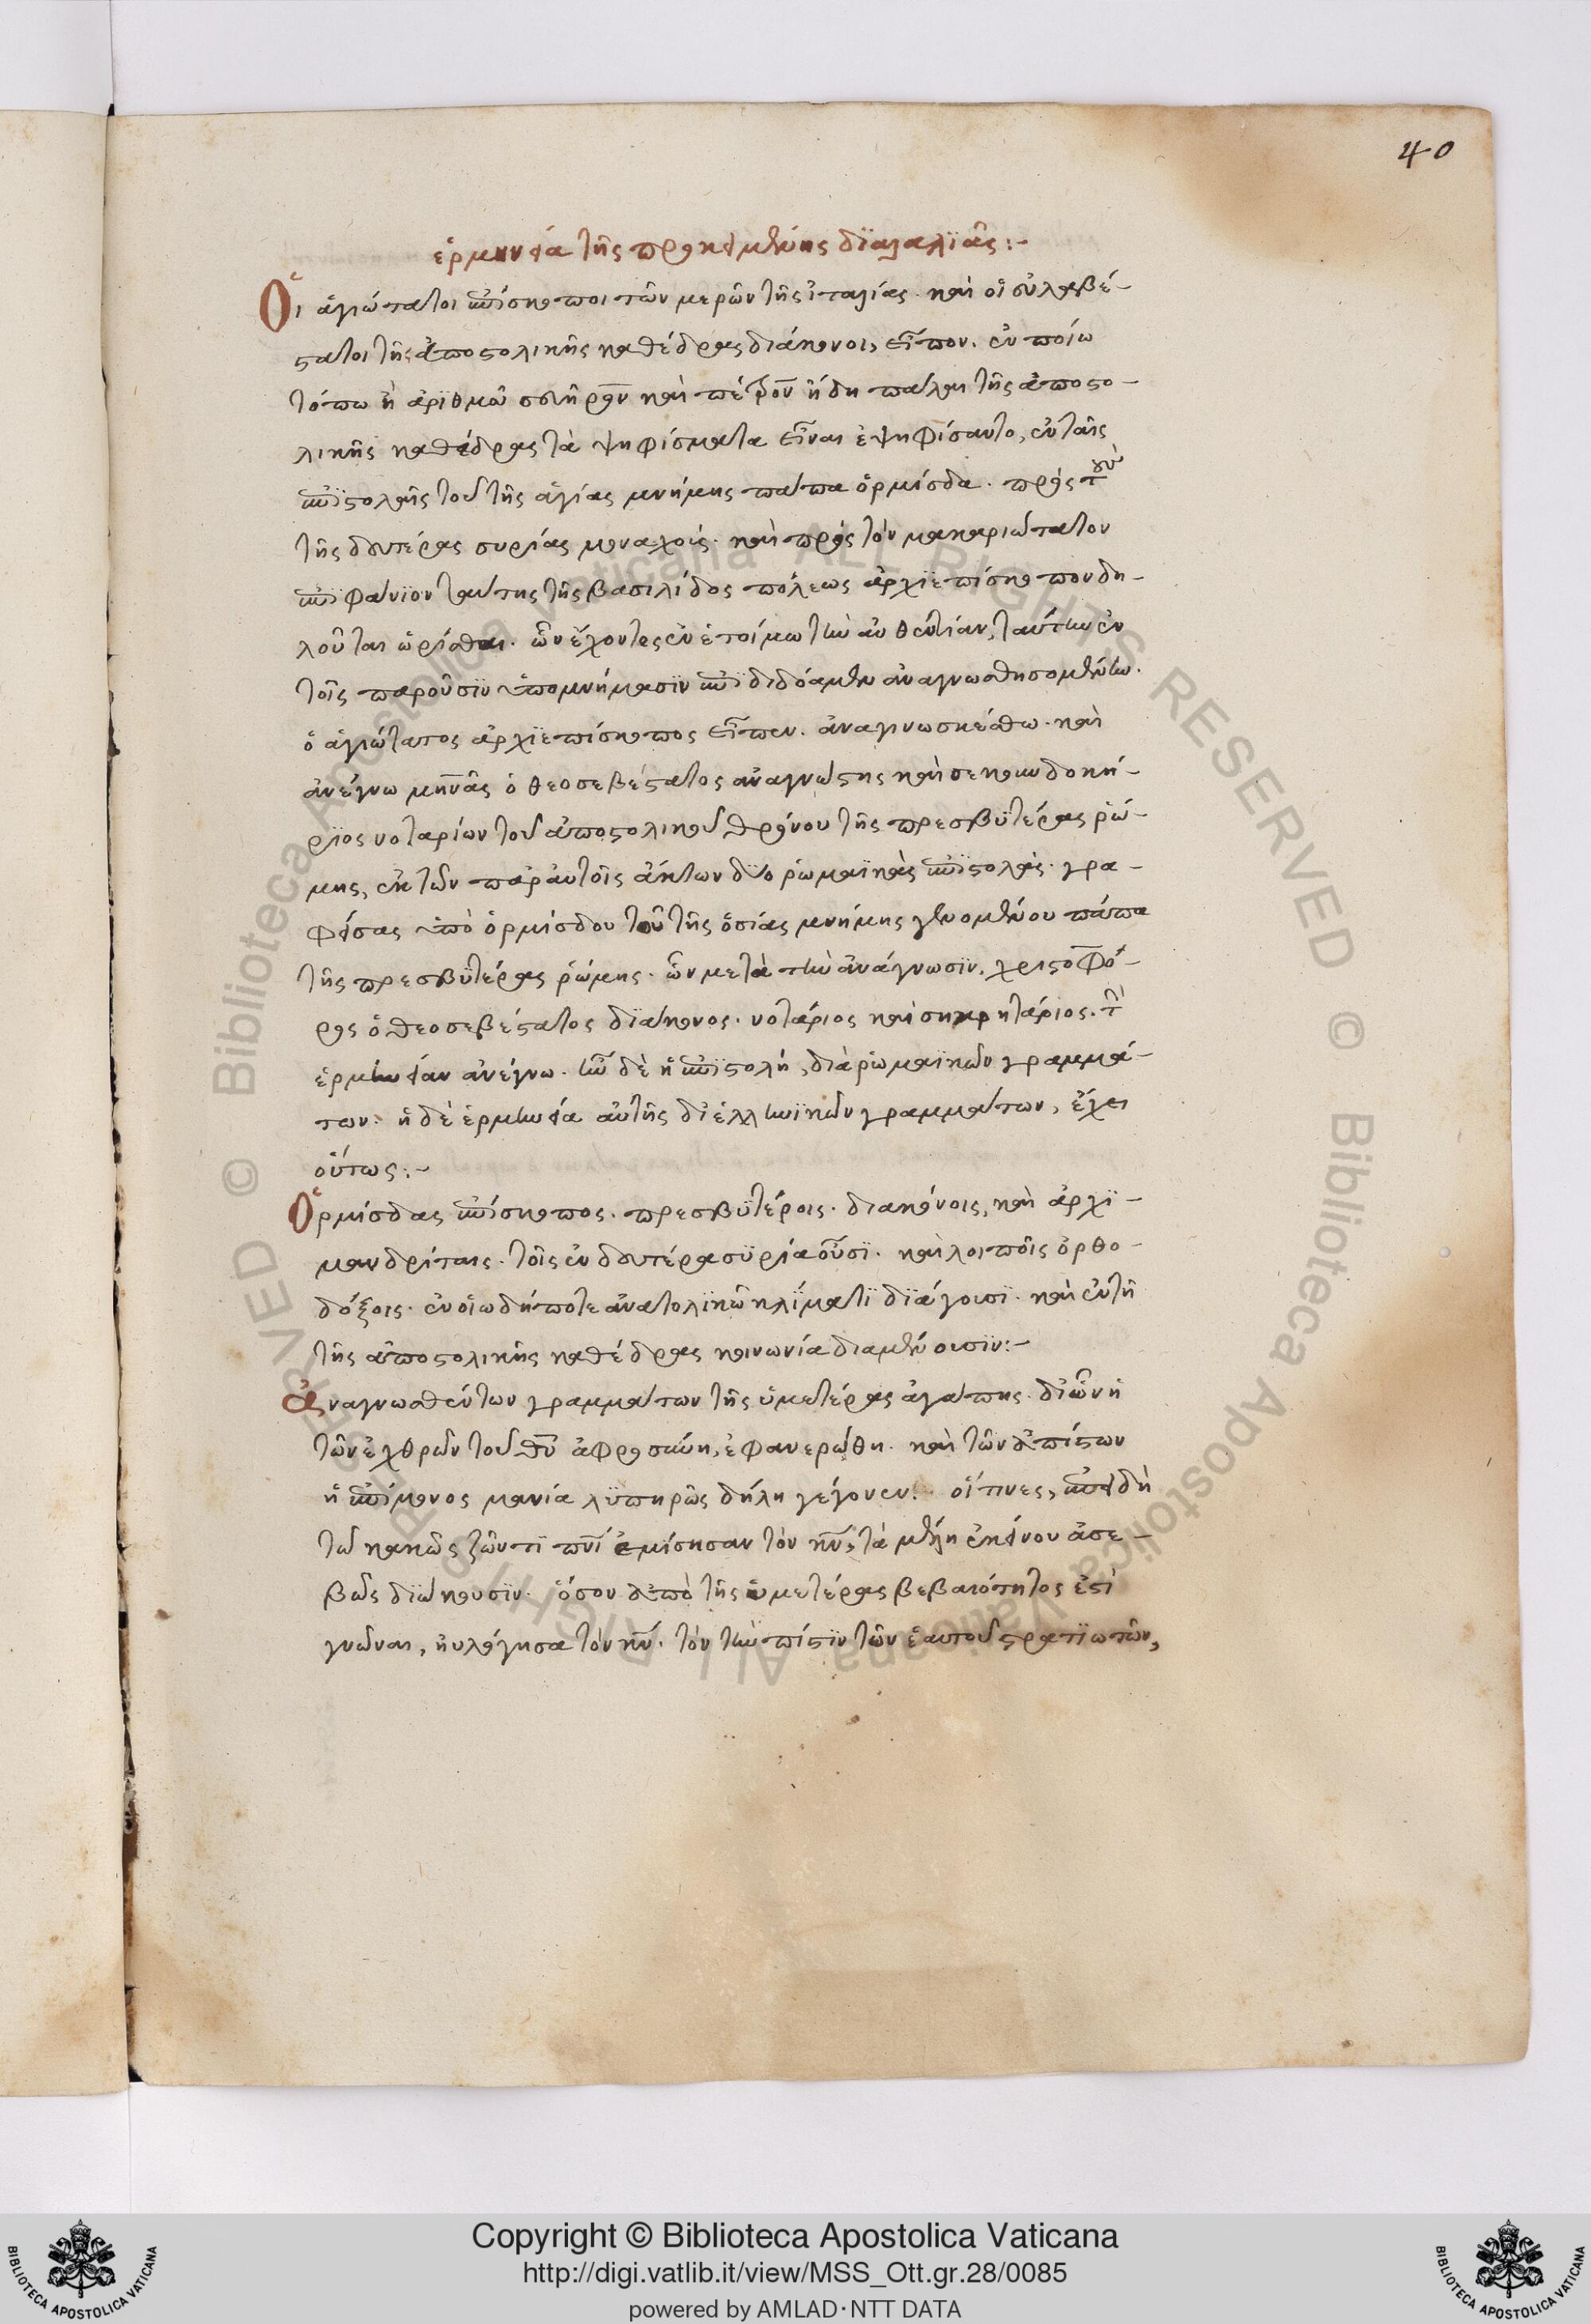 40
ἑρμηνεία τῆς προκειμένης διαλαλιᾶς:-
Οἱ ἁγιώτατοι ἐπίσκοποι τῶν μερῶν τῆς ἰταλίας. καὶ οἱ εὐλαβέ-
στατοι τῆς ἀποστολικῆς καθέδρας διάκονοι, εἶπον. ἐν ποίω
τόπω ἢ ἀριθμῶ καὶ ἤδη πάλαι τῆς ἀποστο-
λικῆς καθέδρας τὰ ψηφίσματα εἶναι ἐψηφίσαντο, ἐν ταῖς
ἐπιστολαῖς τοῦ τῆς ἁγίας μνήμης πάπα ὁρμίσδα. πρὸς τοὺς
τῆς δευτέρας συρίας μοναχούς. καὶ πρὸς τὸν μακαριώτατον
ἐπιφάνιον ταύτης τῆς βασιλίδος πόλεως ἀρχιεπίσκοπον δη-
λοῦται ὡρίσθαι. ὧν ἔχοντες ἐν ἑτοίμω τὴν αὐθεντίαν, ταύτην ἐν
τοῖς παροῦσιν ὑπομνήμασιν ἐπιδιδόαμεν ἀναγνωσθησομένην.
ὁ ἁγιώτατος ἀρχιεπίσκοπος εἶπεν. ἀναγινωσκέσθω. καὶ
ἀνέγνω μηνᾶς ὁ θεοσεβέστατος ἀναγνώστης καὶ σεκουνδοκή-
ριος νοταρίων τοῦ ἀποστολικοῦ θρόνου τῆς πρεσβυτέρας ῥώ-
μης, ἐκ τῶν παρ' αὐτοῖς ἀκτων δύο ῥωμαϊκὰς ἐπιστολὰς. γρα-
φείσας ὑπὸ ὁρμίσδου τοῦ τῆς ὁσίας μνήμης γενομένου πάπα
τῆς πρεσβυτέρας ῥώμης. ὧν μετὰ τὴν ἀνάγνωσιν, χριστοφό-
ρος ὁ θεοσεβέστατος διάκονος. νοτάριος καὶ σηκρητάριος. τὴν
ἑρμηνείαν ἀνέγνω. ἦν δὲ ἡ ἐπιστολή, διὰ ῥωμαικῶν γραμμά-
των. ἡ δὲ ἑρμηνεία αὐτῆς δι' ἑλληνικῶν γραμμάτων, ἔχει
οὕτως:-
Ὁρμίσδας ἐπίσκοπος. πρεσβυτέροις. διακόνοις, καὶ ἀρχι-
μανδρίταις. τοῖς ἐν δευτέρα συρία οὖσι. καὶ λοιποῖς ὀρθο-
δόξοις. ἐν οἵω δήποτε ἀνατολικῶ κλίματι διάγουσι. καὶ ἐν τῆ
τῆς ἀποστολικῆς καθέδρας κοινωνία διαμένουσιν:-
Ἀναγνωσθέντων γραμμάτων τῆς ὑμετέρας ἀγάπης. δι' ὧν ἡ
τῶν ἐχθρῶν τοῦ θῦ ἀφροσύνη, ἐφανερώθη. καὶ τῶν ἀπίστων
ἡ ἐπίμονος μανία λυπηρῶς δήλη γέγονεν. οἵτινες, ἐπειδὴ
τῶ κακῶς ζῶντι πνί ἐμίσησαν τὸν κν, τὰ μέλη ἐκείνου ἀσε-
βῶς διώκουσιν. ὅσον ἀπὸ τῆς ὑμετέρας βεβαιότητος ἐπὶ
γνῶναι, ηὐλόγησα τὸν κν. τὸν τὴν πίστιν τῶν ἑαυτοῦ στρατιωτῶν,
Copyright © Biblioteca Apostolica Vaticana
http://digi.vatlib.it/view/MSS_Ott.gr.28/0085
powered by AMLAD·NTT DATA